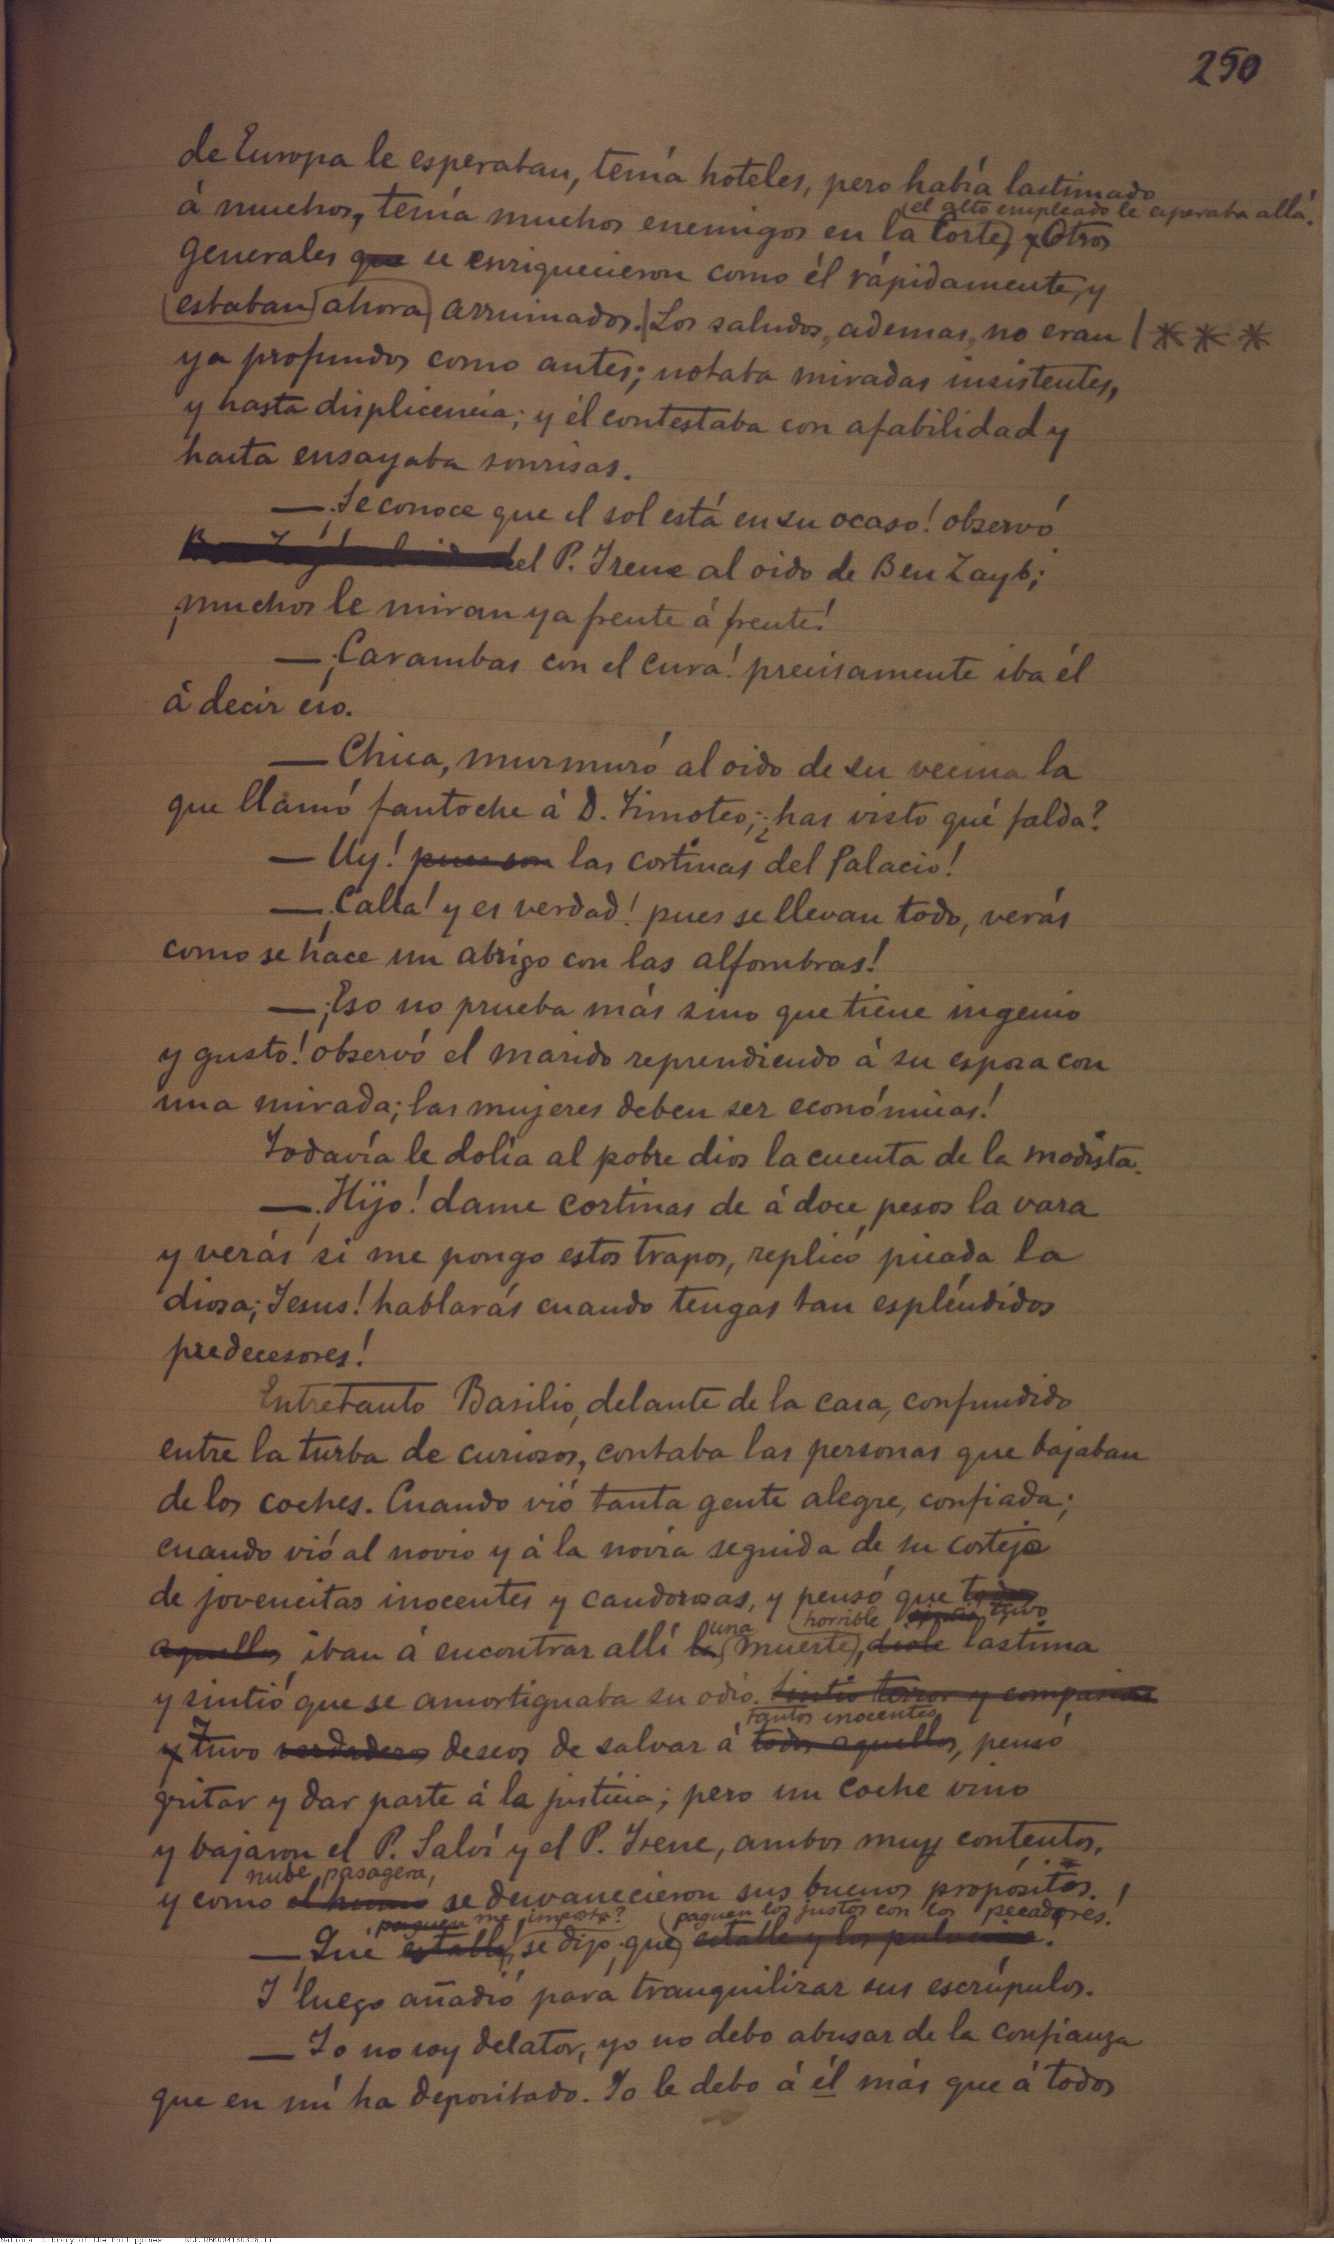 250
de Europa le esperaban, tenía hoteles, pero había lastimado
á muchos, tenía muchos enemigos en la Corte, y Otros
el alto empleado le esperaba allá.
generales que se enriquecieron como él rápidamente, y
estaban ahora arruinados. Los saludos, ademas, no eran
ya profundos como antes; notaba miradas insistentes,
y hasta displicencia; y él contestaba con afabilidad y
hasta ensayaba sonrisas.
— ¡Se conoce que el sol está en su ocaso! observó
el P. Irene al oido de Ben Zayb;
¡muchos le miran ya frente á frente!
— ¡Carambas con el cura! precisamente iba él
á decir eso.
— Chica, murmuró al oido de su vecina la
que llamó fantoche á D. Timoteo; ¿has visto qué falda?
— Uy! pues son las cortinas del Palacio!
— ¡Calla! y es verdad! pues se llevan todo, verás
como se hace un abrigo con las alfombras!
— ¡Eso no prueba más sino que tiene ingenio
y gusto! observó el marido reprendiendo á su esposa con
una mirada; las mujeres deben ser económicas!
Todavía le dolía al pobre dios la cuenta de la modista.
— ¡Hijo! dame cortinas de á doce pesos la vara
y verás si me pongo estos trapos, replicó picada la
diosa; Jesus! hablarás cuando tengas tan espléndidos
predecesores!
Entretanto Basilio, delante de la casa, confundido
entre la turba de curiosos, contaba las personas que bajaban
de los coches. Cuando vió tanta gente alegre, confiada;
cuando vió al novio y á la novia seguida de su cortejo
de jovencitas inocentes y candorosas, y pensó que todos
una horrible tuvo
aquellos iban á encontrar allí la muerte, dióle lastima
y sintió que se amortiguaba su odio. Sintió terror y compasion
tantos inocentes
y Tuvo verdaderos deseos de salvar á todos aquellos, pensó
gritar y dar parte á la justicia; pero un coche vino
y bajaron el P. Salví y el P. Irene, ambos muy contentos,
nube pasagera,
y como el humo se desvanecieron sus buenos propósitos.
me importa? paguen los justos con los pecadores!
— ¡Qué estalle, se dijo, que estalle y los pulverice.
Y luego añadió para tranquilizar sus escrúpulos.
— Yo no soy delator, yo no debo abusar de la confianza
que en mí ha depositado. Yo le debo á él más que á todos